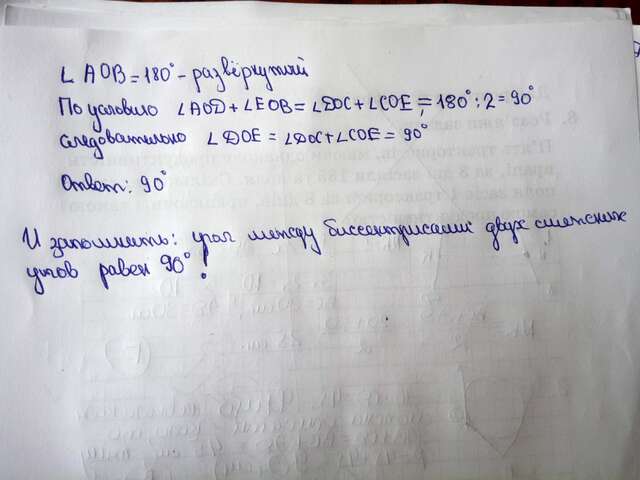 ∠AOB = 180° - развёрнутый
По условию ∠AOD + ∠EOB = ∠DOC + ∠COE = 180° : 2 = 90°
следовательно ∠DOE = ∠DOC + ∠COE = 90°
Ответ: 90°
И запомнить: угол между биссектрисами двух смежных
углов равен 90°!